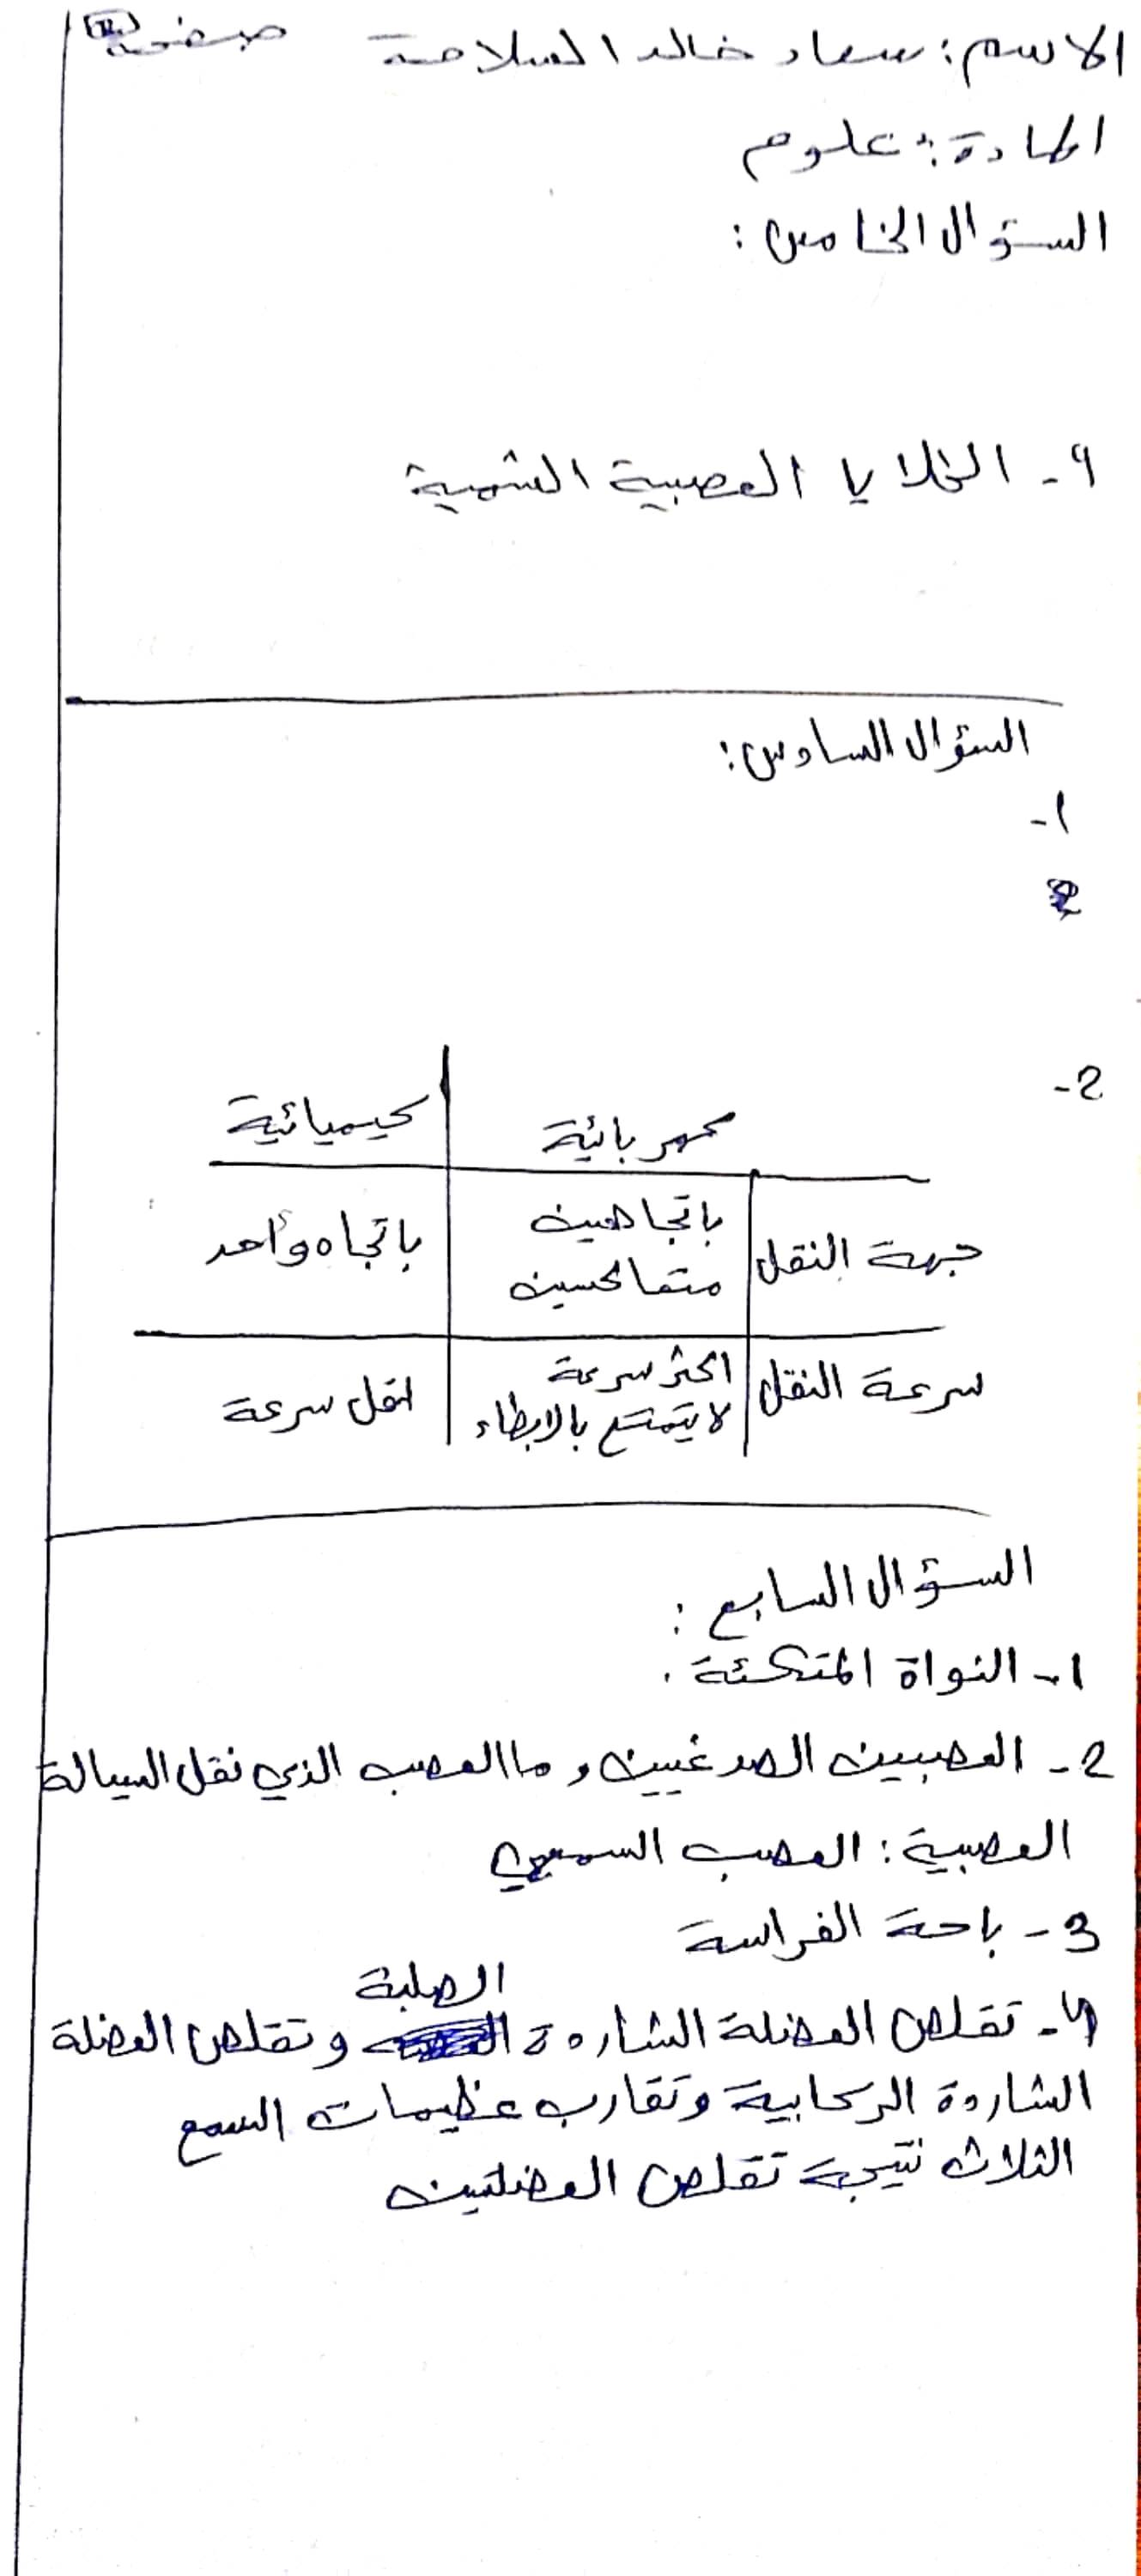 الاسم: سعاد خالد السلامة صفحة
المادة: علوم
السؤال الخامس:
9- الخلايا العصبية الشمية
السؤال السادس:
1-
2
2-
كهربائية كيميائية
جهة النقل باتجاهين متعاكسين باتجاه واحد
سرعة النقل اكثر سرعة لا يتمتع بالابطاء اقل سرعة
السؤال السابع:
1- النواة المتكئة.
2- العصبين الصدغيين وما العصب الذي نقل السيالة
العصبية: العصب السمعي
3- باحة الفراسة
4- تقلص العضلة الشادة الصلبة وتقلص العضلة
الشادة الركابية وتقارب عظيمات السمع
الثلاث نتيجة تقلص العضلتين